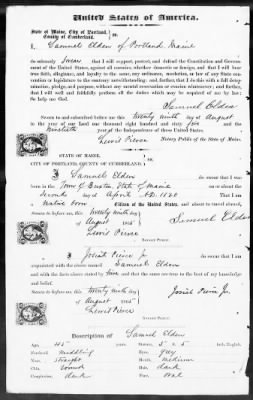 United States of America.
State of Maine, City of Portland,
County of Cumberland.
ss:
I, Samuel Elden of Portland Maine
do solemnly swear that I will support, protect, and defend the Constitution and Government
of the United States, against all enemies, whether domestic or foreign, and that I will bear
true faith, allegiance, and loyalty to the same, any ordinance, resolution, or law of any State con-
vention or legislature to the contrary notwithstanding; and further, that I do this with a full deter-
mination, pledge, and purpose, without any mental reservation or evasion whatsoever; and further,
that I will well and faithfully perform all the duties which may be required of me by law:
So help me God.
Samuel Elden
Sworn to and subscribed before me this twenty ninth day of August
in the year of our lord one thousand eight hundred and sixty five and the
ninetieth year of the Independence of these United States.
Lewis Pierce
Notary Public of the State of Maine.
STATE OF MAINE,
CITY OF PORTLAND, COUNTY OF CUMBERLAND.
ss:
I Samuel Elden do swear that I am
born in the Town of Buxton State of Maine on or about the
second day of April A.D. 1820 that I am
a native born Citizen of the United States, and about to travel abroad,
Sworn to before me, this twenty ninth day
of August 1865
Samuel Elden
Lewis Pierce
NOTARY PUBLIC.
I Josiah Pierce Jr. do swear that I am
acquainted with the above named Samuel Elden
and with the facts above stated by him and that the same are true to the best of my knowledge
and belief.
Sworn to before me, this twenty ninth day
of August 1865
Josiah Pierce Jr.
Lewis Pierce
NOTARY PUBLIC.
Description of Samuel Elden
Age, 45 years
Stature, 5 . 2 . 5 inch, English.
Forehead, middling
Eyes, gray
Nose, straight
Mouth, medium
Chin, round
Hair, dark
Complexion, dark
Face, oval